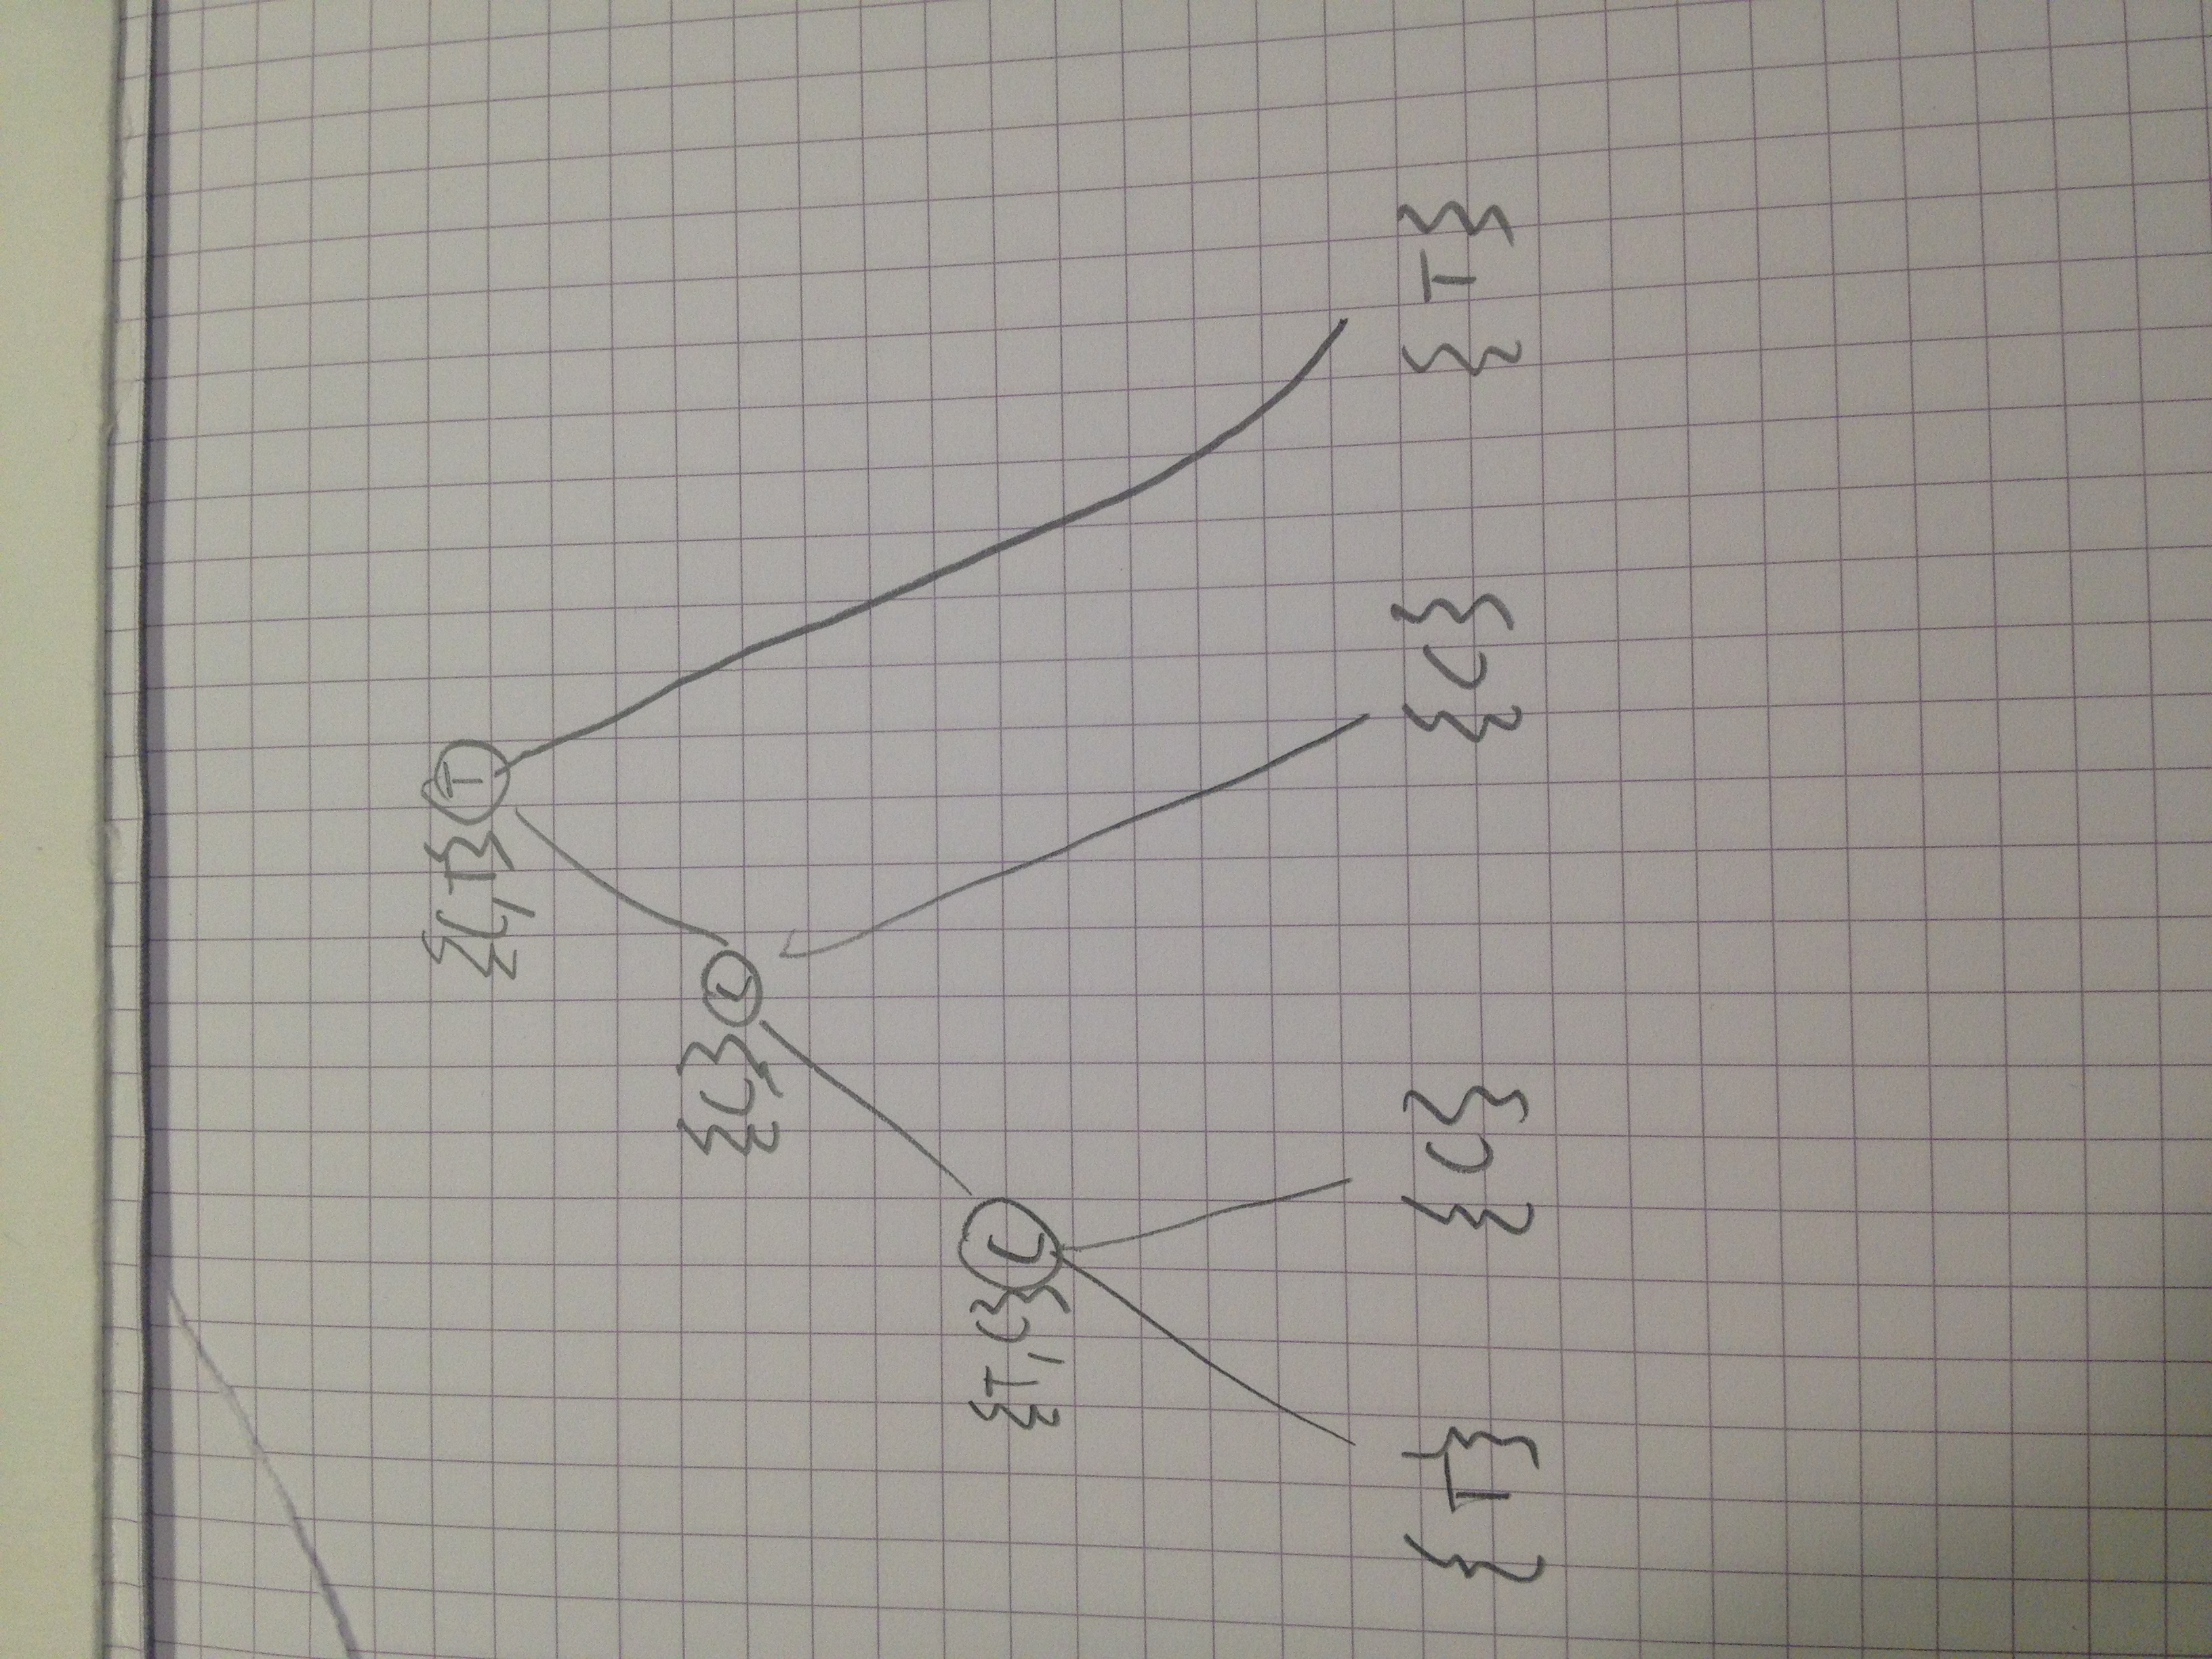 {C,T} T
{C} C
{T,C} C
{T} {C} {C} {T}